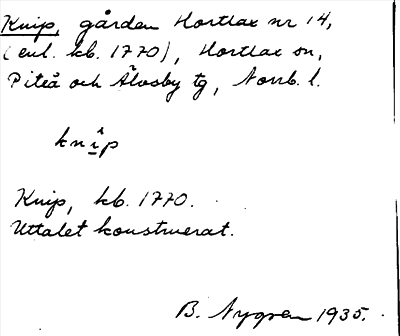 Knip, gården Hortlax nr 14,
(enl. kb. 1770), Hortlax sn,
Piteå och Älvsby tg, Norrb. l.
knîp
Knip, kb. 1770.
Uttalet konstruerat.
B. Nygren 1935.